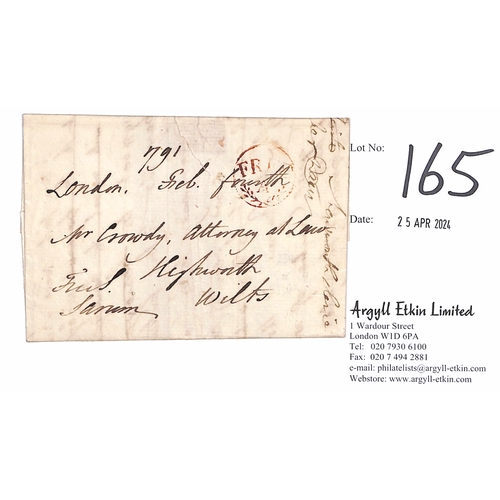 791
London. Feb. fourth
FR
Mr Crowdy, Attorney at Law
Highworth
Wilts
Free
Sarum
Lot No:
165
Date:
25 APR 2024
Argyll Etkin Limited
1 Wardour Street
London W1D 6PA
Tel: 020 7930 6100
Fax: 020 7 494 2881
e-mail: philatelists@argyll-etkin.com
Webstore: www.argyll-etkin.com